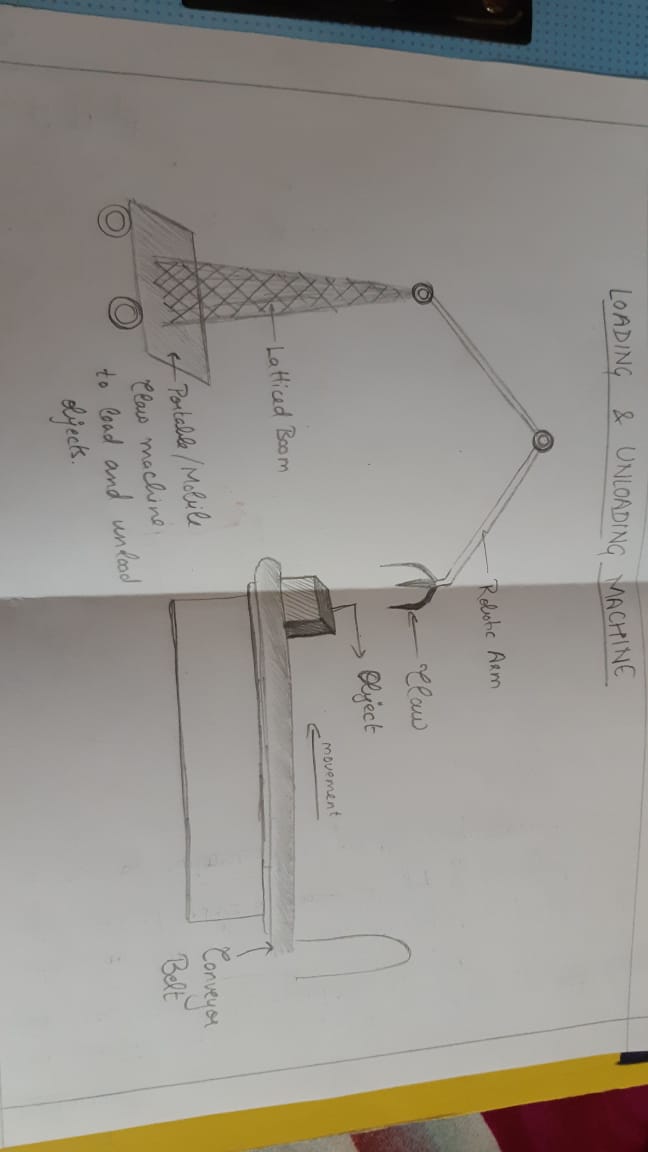 LOADING & UNLOADING MACHINE
Robotic Arm
Claw
Object
movement
Latticed Boom
Portable/Mobile
Claw machine
to load and unload
objects.
Conveyor
Belt